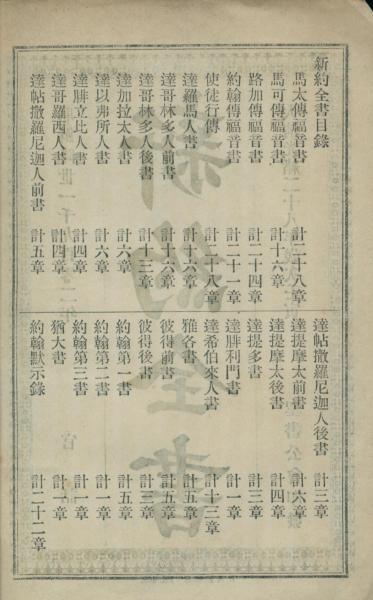 新約全書目錄
馬太傳福音書 計二十八章
馬可傳福音書 計十六章
路加傳福音書 計二十四章
約翰傳福音書 計二十一章
使徒行傳 計二十八章
達羅馬人書 計十六章
達哥林多人前書 計十六章
達哥林多人後書 計十三章
達加拉太人書 計六章
達以弗所人書 計六章
達腓立比人書 計四章
達哥羅西人書 計四章
達帖撒羅尼迦人前書 計五章
達帖撒羅尼迦人後書 計三章
達提摩太前書 計六章
達提摩太後書 計四章
達提多書 計三章
達腓利門書 計一章
達希伯來人書 計十三章
雅各書 計五章
彼得前書 計五章
彼得後書 計三章
約翰第一書 計五章
約翰第二書 計一章
約翰第三書 計一章
猶大書 計一章
約翰默示錄 計二十二章